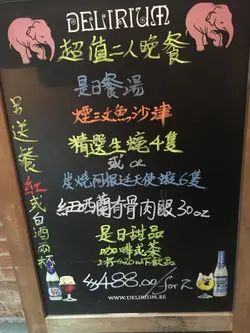 DELIRIUM
超值二人晚餐
是日餐湯
煙三文魚沙津
精選生蠔4隻
或 OR
炭燒阿根廷天使蝦6隻
紐西蘭有骨肉眼30oz
是日甜品
咖啡或茶
$488.00 for 2
WWW.DELIRIUM.BE
另送餐紅或白酒兩杯